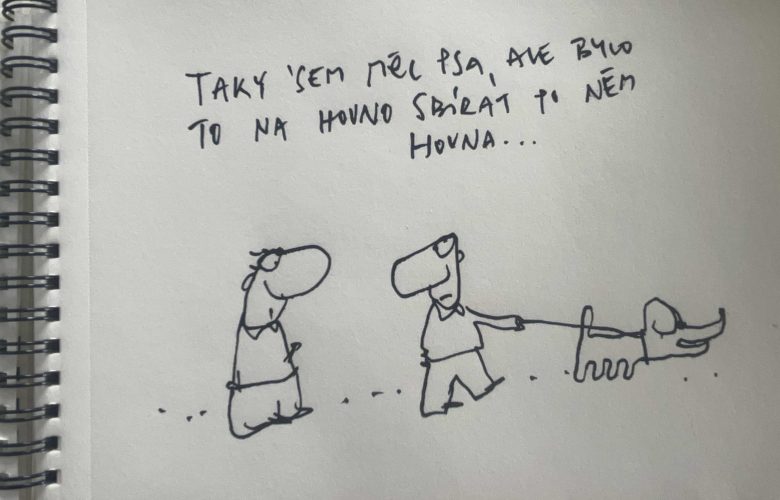 TAKY 'SEM MĚL PSA, ALE BYLO
TO NA HOVNO SBÍRAT PO NĚM
HOVNA...